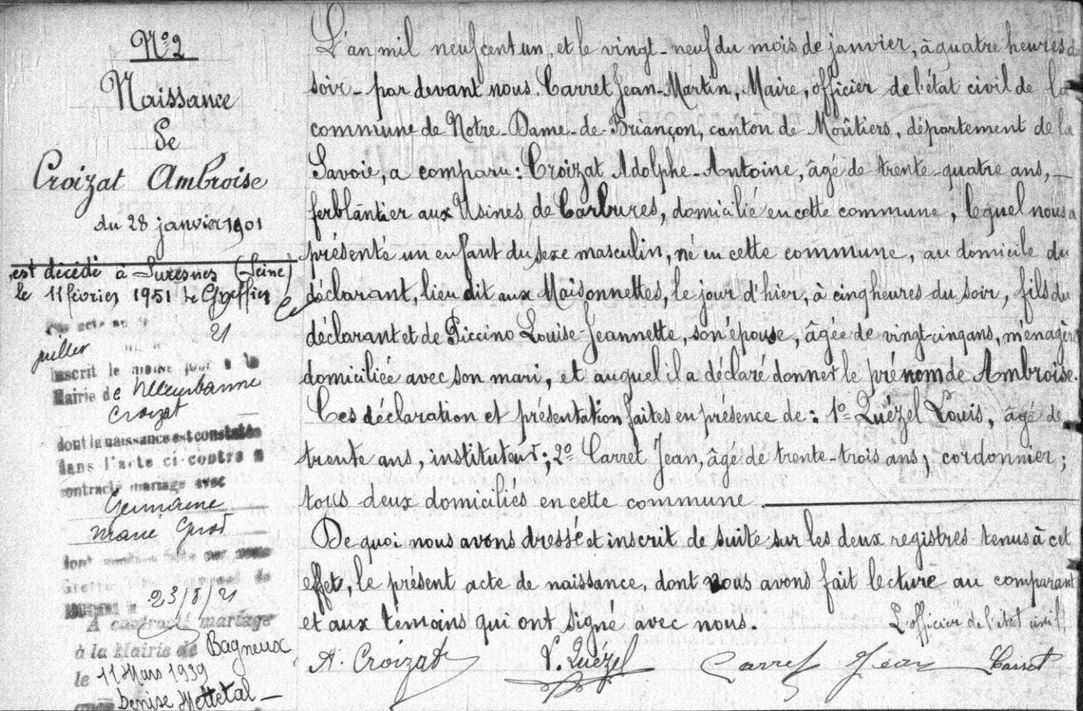 N° 2
Naissance
De
Croizat Ambroise
du 28 janvier 1901
est décédé à Suresnes (Seine)
le 11 février 1951 Le Greffier
21
juillet
Inscrit le même jour à la
Mairie de Villeurbanne
Croizat
dont la naissance est constatée
dans l'acte ci-contre a
contracté mariage avec
Germaine
Marie
dont
Greffe
23/8/21
A contracté mariage
à la Mairie de Bagneux
le 11 Mars 1939
avec Denise Mettetal
L'an mil neuf cent un, et le vingt-neuf du mois de janvier, à quatre heures du
soir - par devant nous. Carret Jean-Martin, Maire, officier de l'état civil de la
commune de Notre Dame-de-Briançon, canton de Moûtiers, département de la
Savoie, a comparu: Croizat Adolphe-Antoine, âgé de trente-quatre ans, -
ferblantier aux Usines de Carbures, domicilié en cette commune, lequel nous a
présenté un enfant du sexe masculin, né en cette commune, au domicile du
déclarant, lieu dit aux Maisonnettes, le jour d'hier, à cinq heures du soir, fils du
déclarant et de Piccino Louise-Jeannette, son épouse, âgée de vingt-cinq ans, ménagère
domiciliée avec son mari, et auquel il a déclaré donner le prénom de Ambroise.
Ces déclaration et présentation faites en présence de: 1° Quézel Louis, âgé de
trente ans, instituteur; 2° Carret Jean, âgé de trente-trois ans; cordonnier;
tous deux domiciliés en cette commune
De quoi nous avons dressé et inscrit de suite sur les deux registres tenus à cet
effet, le présent acte de naissance, dont nous avons fait lecture au comparant
et aux témoins qui ont signé avec nous. L'officier de l'état civil
A. Croizat L. Quézel Carret Jean Carret